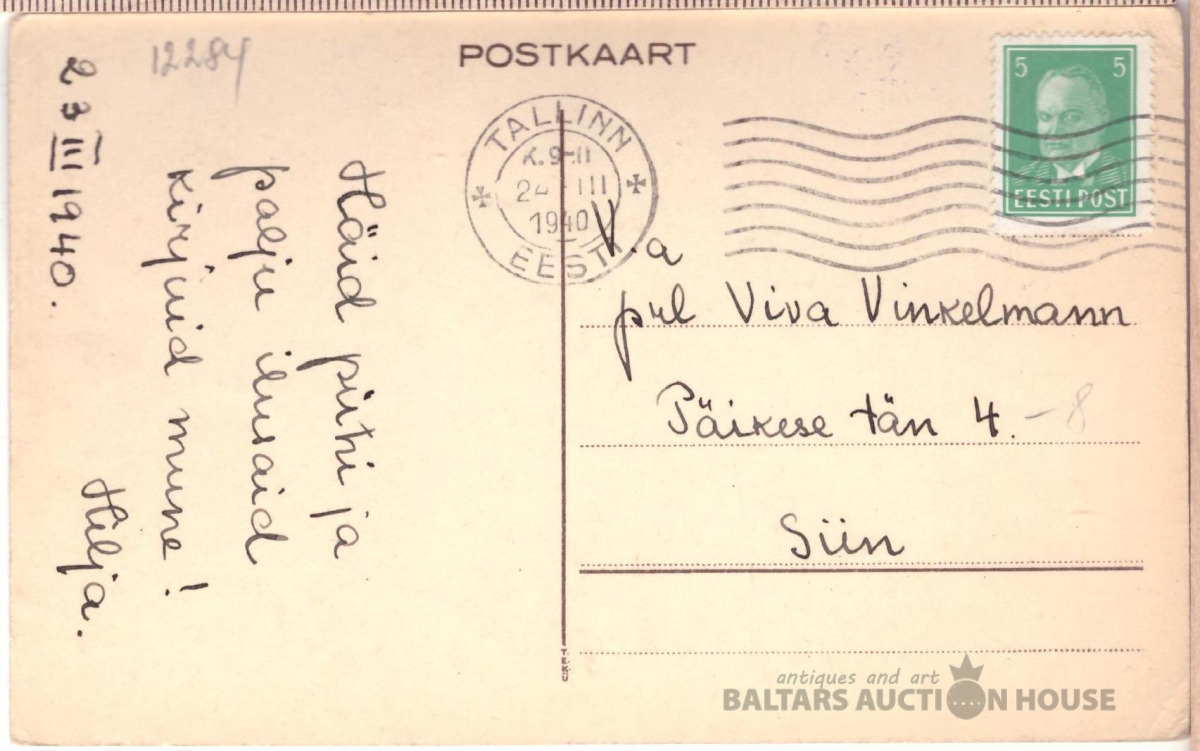 12284
POSTKAART
23 III 1940.
Häid pühi ja
palju ilusaid
kirjuid mune!
Hilja.
TALLINN
K. 9-11
24 III
1940
EESTI
5 5
EESTI POST
V.a
prl Viva Vinkelmann
Päikese tän 4. – 8
Siin
T.E.K.Ü
antiques and art
BALTARS AUCTION HOUSE